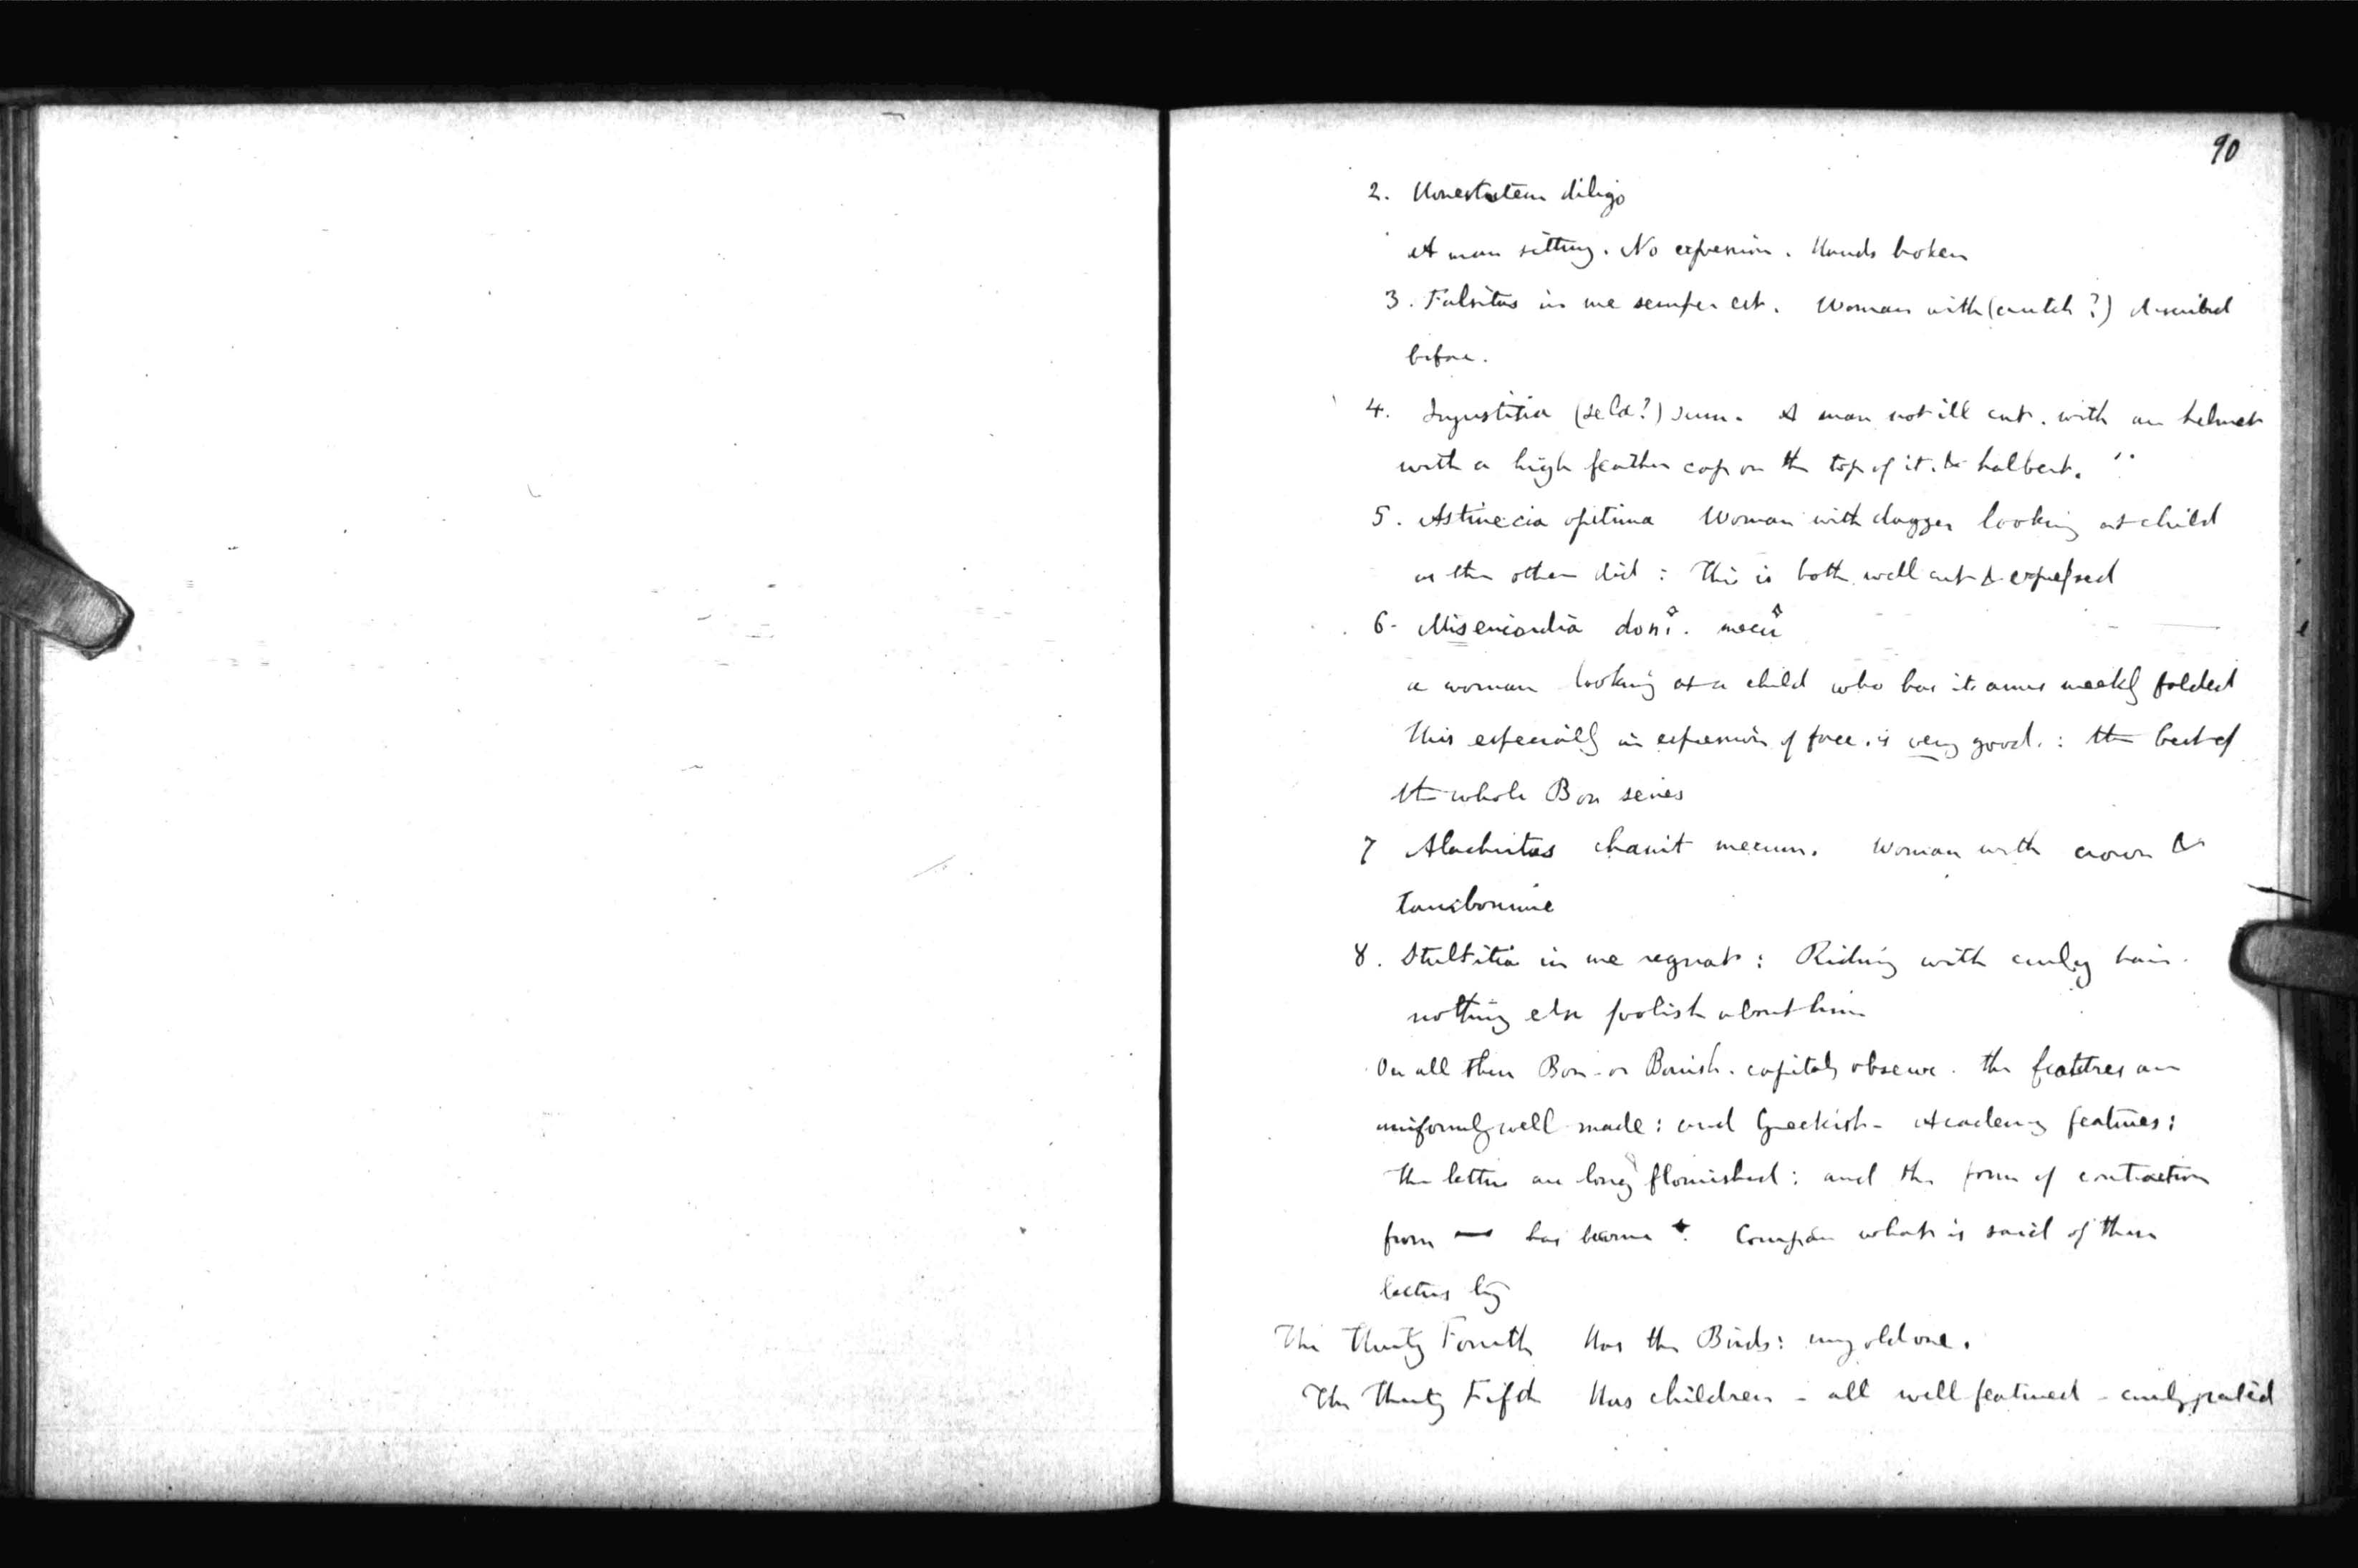 90
2. Honestatem diligo
A man sitting. No expression. Hands broken
3. Falsitas in me semper est. Woman with (crutch?) described
before.
4. Injustitia (seld?) sum. A man not ill cut. with an helmet
with a high feather cap on the top of it. & halbert.
5. Astinecia opitima Woman with dagger looking at child
as the other did: This is both well cut & expressed
6. Misericordia doni. mecu
a woman looking at a child who has its arms meekly folded
This especially in expression of face. is very good.: the best of
the whole Bon series
7 Alachritas chanit mecum. Woman with crown &
tambourine
8. Stultitia in me regnat: Riding with curly hair.
nothing else foolish about him
On all these Bon - or Bonish. capitals observe. the features are
uniformly well made: and Greekish - Academy features:
The letters are long flourished: and the form of contraction
from — has become ✦. Compare what is said of these
letters by
The Thirty Fourth Has the Birds: my old one.
The Thirty Fifth Has children - all well featured - curly pated